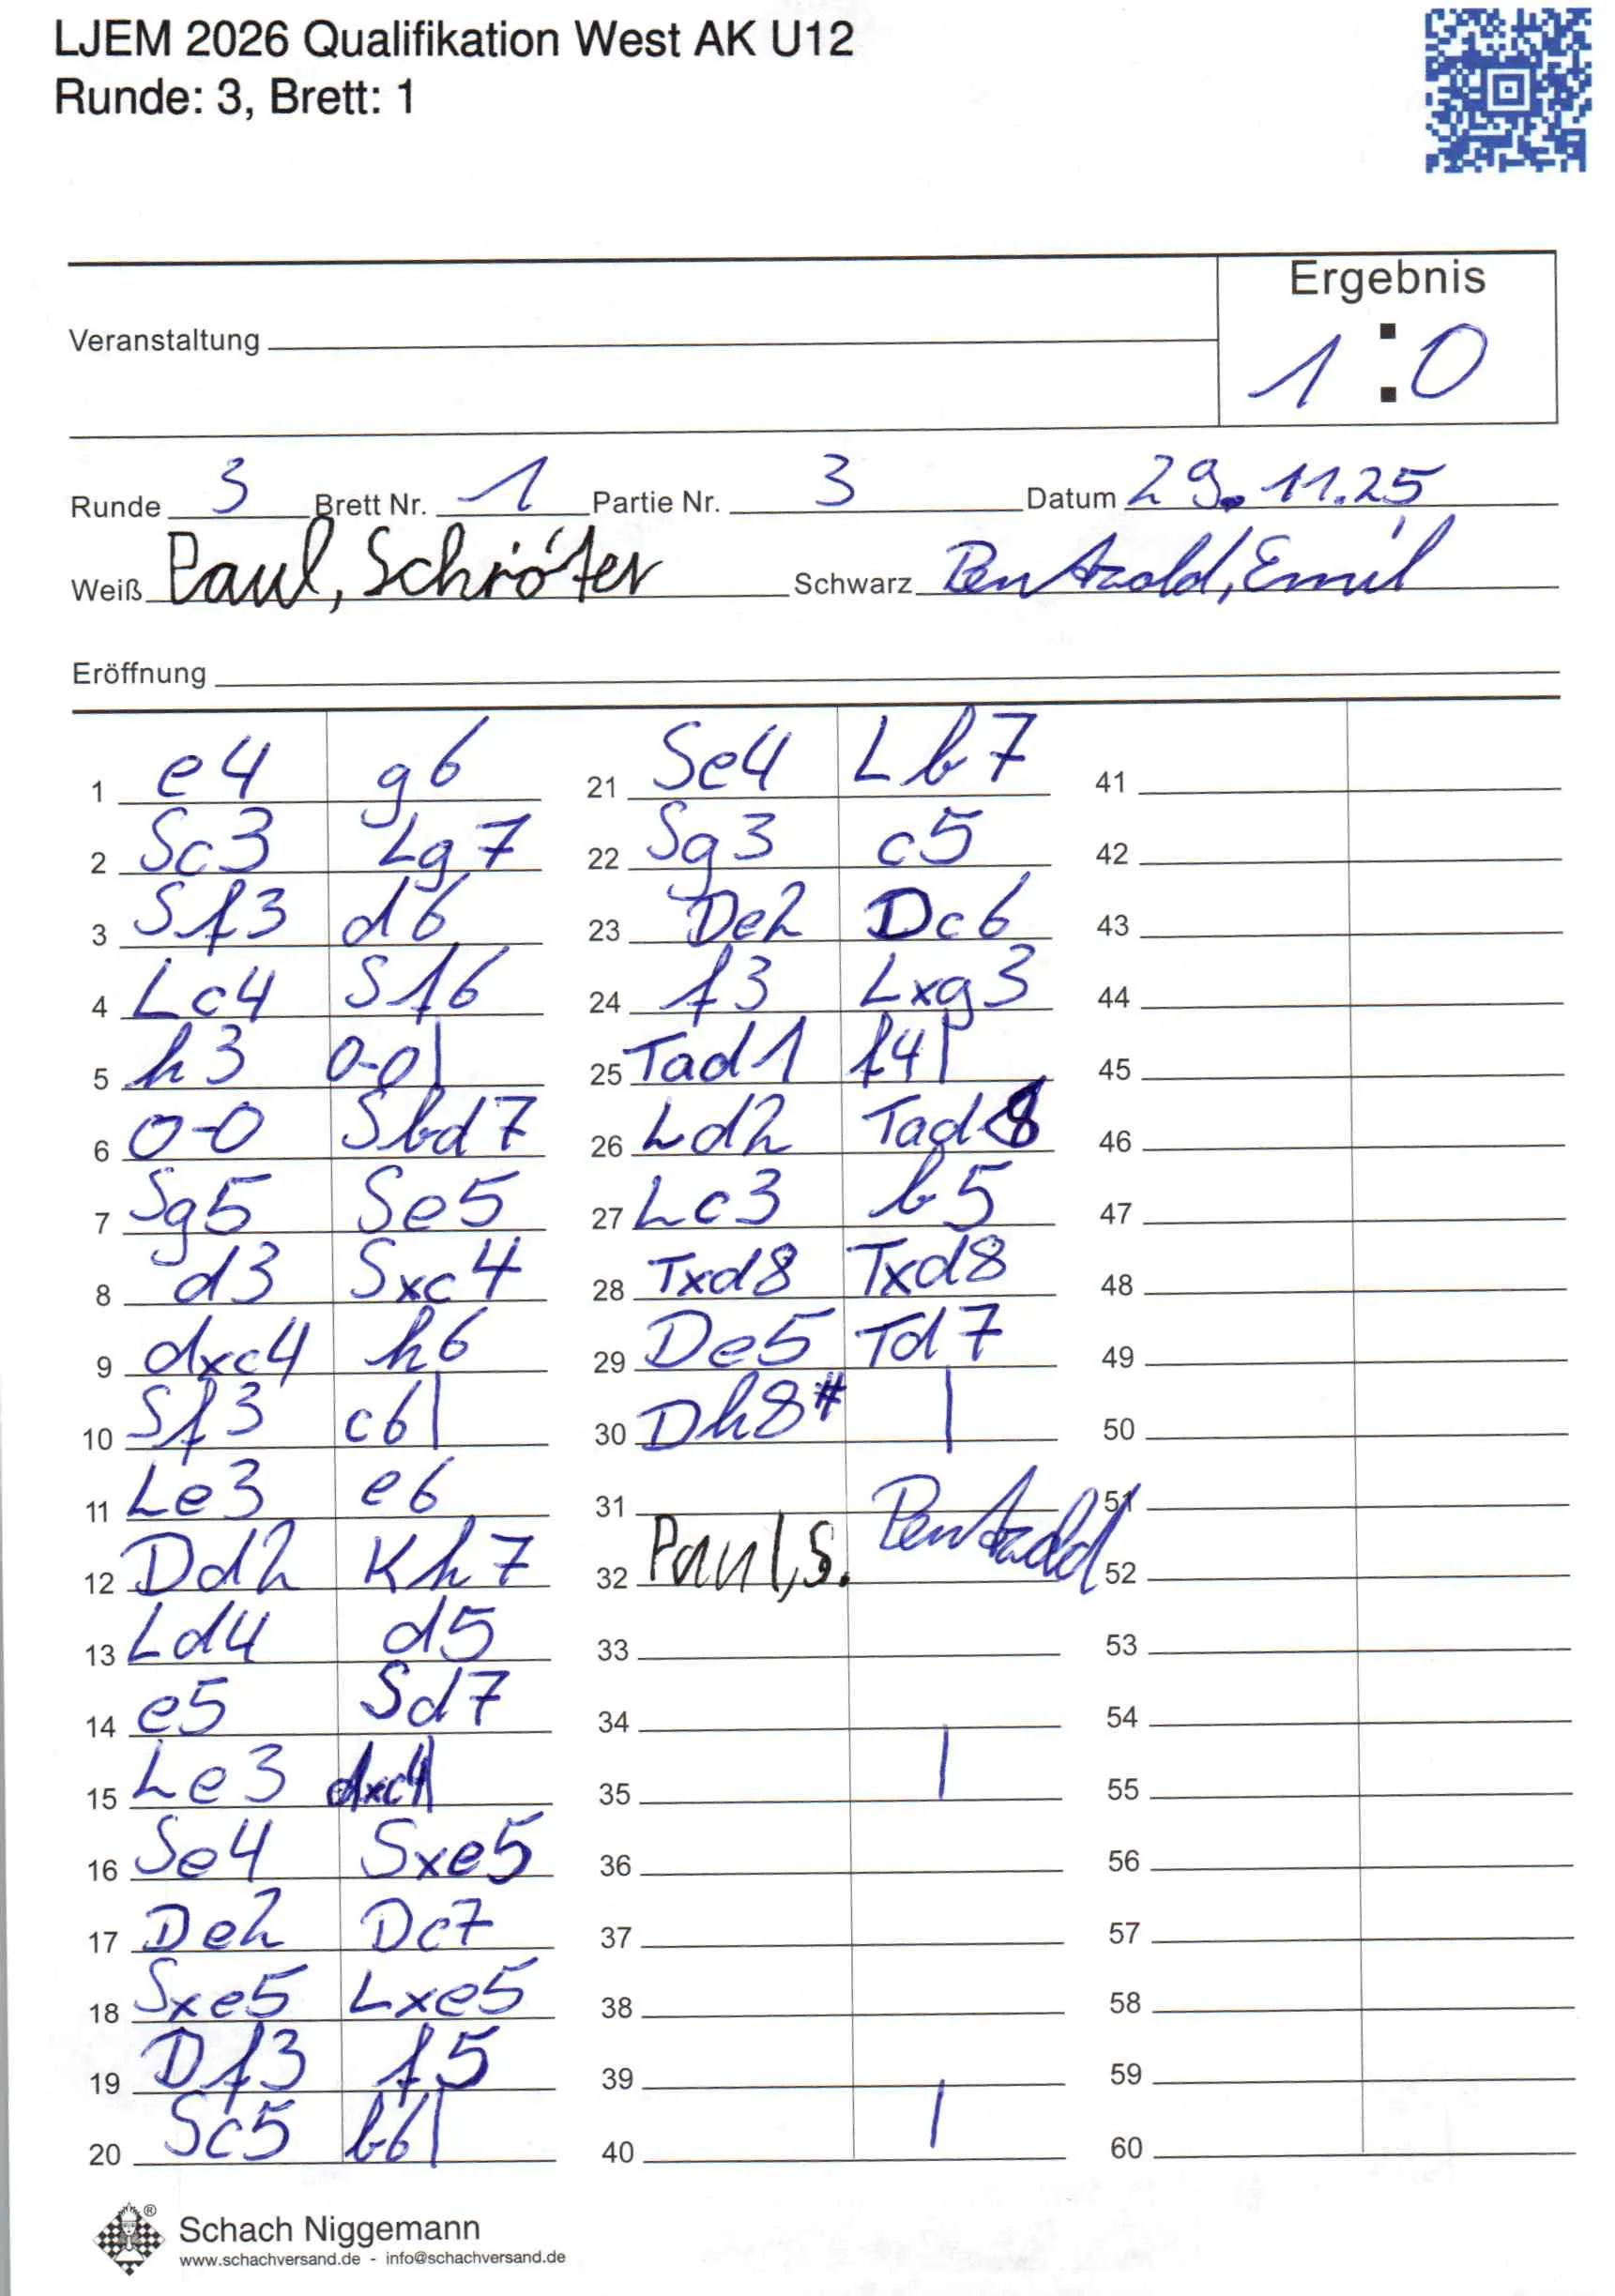 LJEM 2026 Qualifikation West AK U12
Runde: 3, Brett: 1
Ergebnis
1 : 0
Veranstaltung
Runde 3 Brett Nr. 1 Partie Nr. 3 Datum 29.11.25
Weiß Paul, Schröter Schwarz Pentzold, Emil
Eröffnung
1 e4 g6
2 Sc3 Lg7
3 Sf3 d6
4 Lc4 Sf6
5 h3 0-0
6 0-0 Sbd7
7 Sg5 Se5
8 d3 Sxc4
9 dxc4 h6
10 Sf3 c6
11 Le3 e6
12 Dd2 Kh7
13 Ld4 d5
14 e5 Sd7
15 Le3 dxc4
16 Se4 Sxe5
17 De2 Dc7
18 Sxe5 Lxe5
19 Df3 f5
20 Sc5 b6
21 Se4 Lb7
22 Sg3 c5
23 De2 Dc6
24 f3 Lxg3
25 Tad1 f4
26 Ld2 Tad8
27 Lc3 b5
28 Txd8 Txd8
29 De5 Td7
30 Dh8#
31
32 Paul,S. Pentzold
33
34
35
36
37
38
39
40
41
42
43
44
45
46
47
48
49
50
51
52
53
54
55
56
57
58
59
60
®
Schach Niggemann
www.schachversand.de - info@schachversand.de